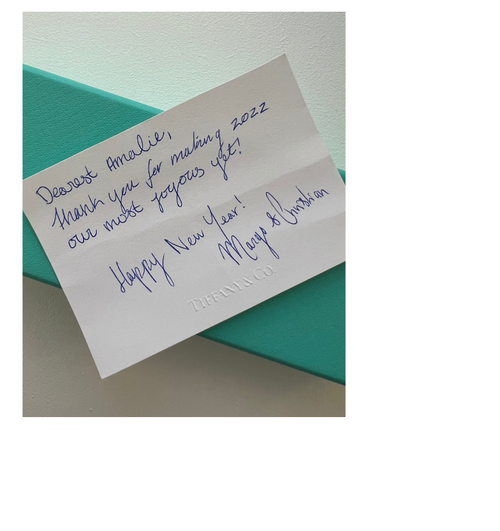 Dearest Amalie,
thank you for making 2022
our most joyous yet!
Happy New Year!
Margo & Christian
TIFFANY & CO.